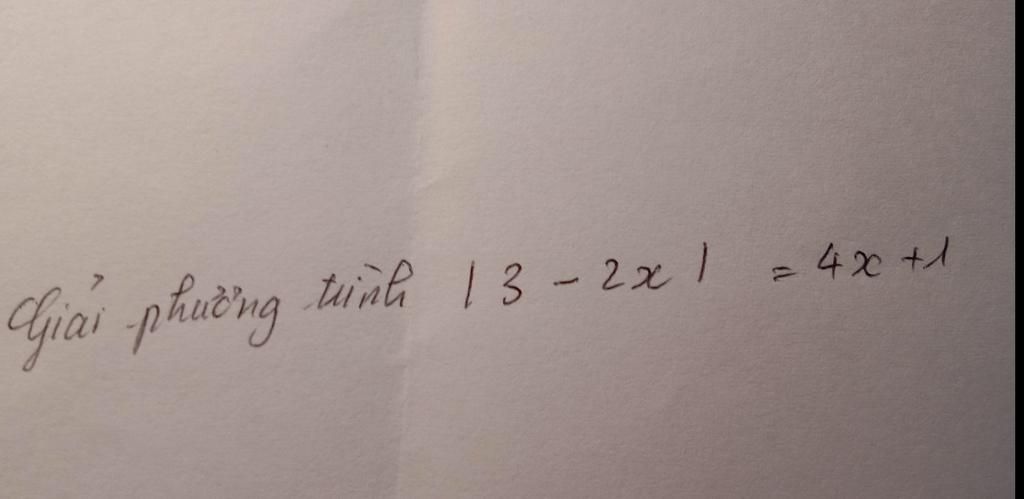 Giải phương trình | 3 - 2x | = 4x + 1